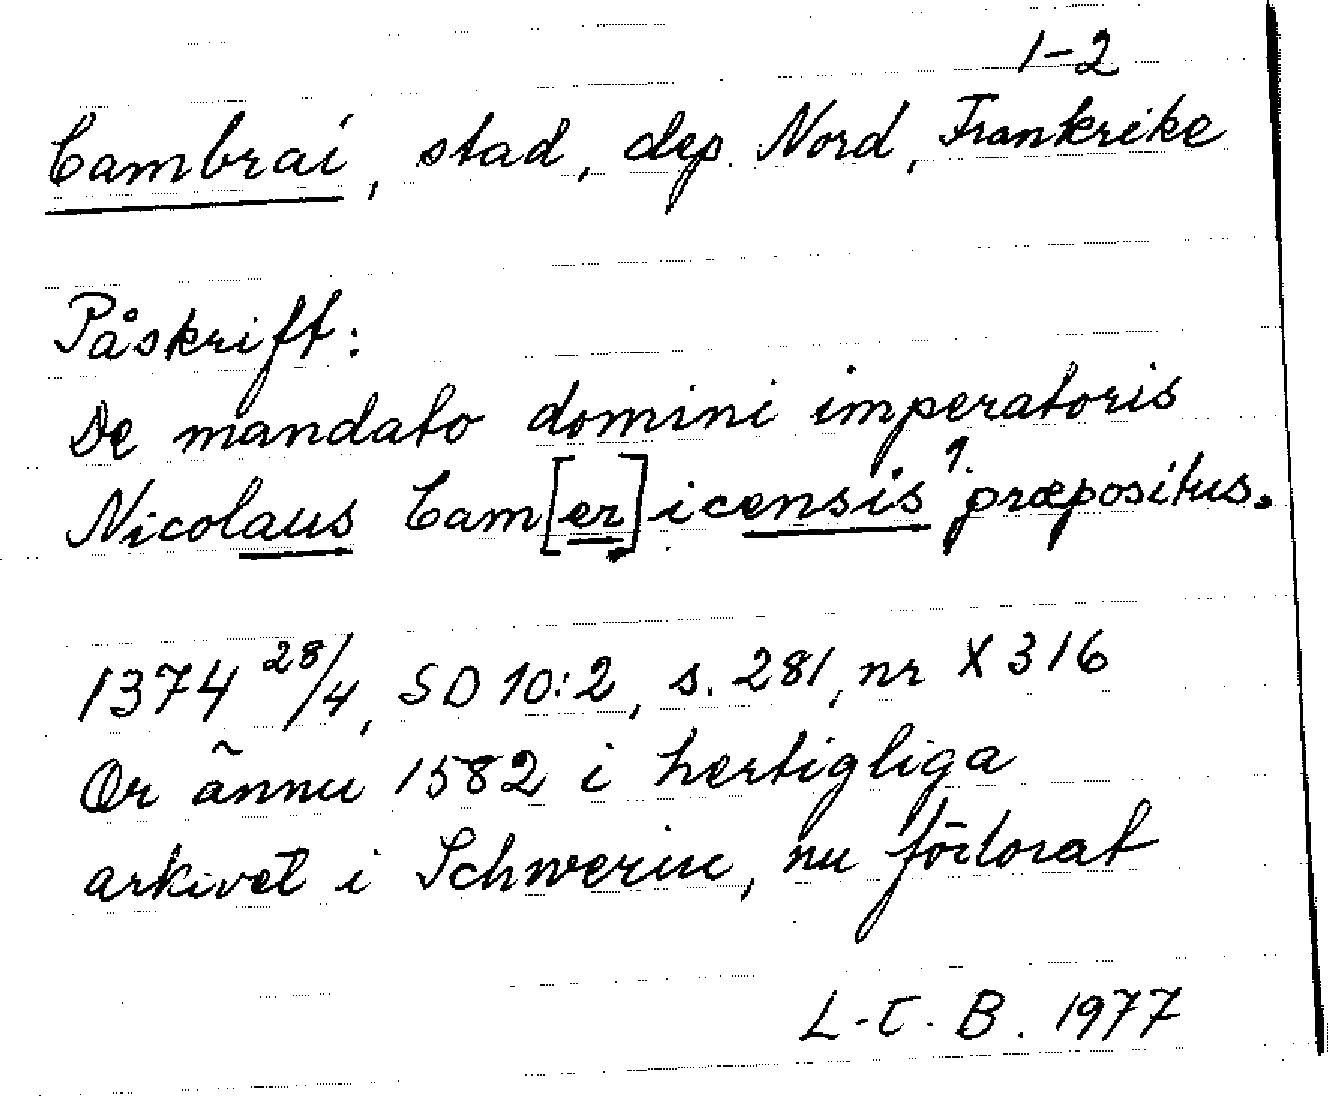 1-2
Cambrai, stad, dep. Nord, Frankrike
Påskrift:
De mandato domini imperatoris
Nicolaus Cam[er]icensis 1. præpositus.
1374 28/4, SD 10:2, s. 281, nr X 316
Or ännu 1582 i hertigliga
arkivet i Schwerin, nu förlorat
L-C. B. 1977